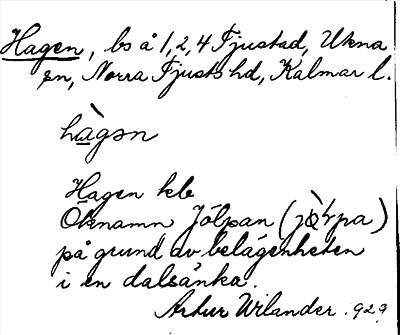 Hagen, bs å 1, 2, 4 Fjustad, Ukna
sn, Norra Tjusts hd, Kalmar l.
hàgən
Hagen kls
Öknamn Jölpan (
på grund av belägenheten
i en dalsänka.
Artur Wilander. 929